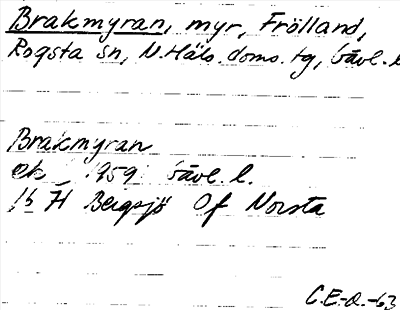 Brakmyran, myr, Frölland,
Rogsta sn, N. Häls. doms. tg, Gävl. l.
Brakmyran
ek 1959 Gävl. l.
H Bergsjö Of Norsta
C.E.-Ö.-63